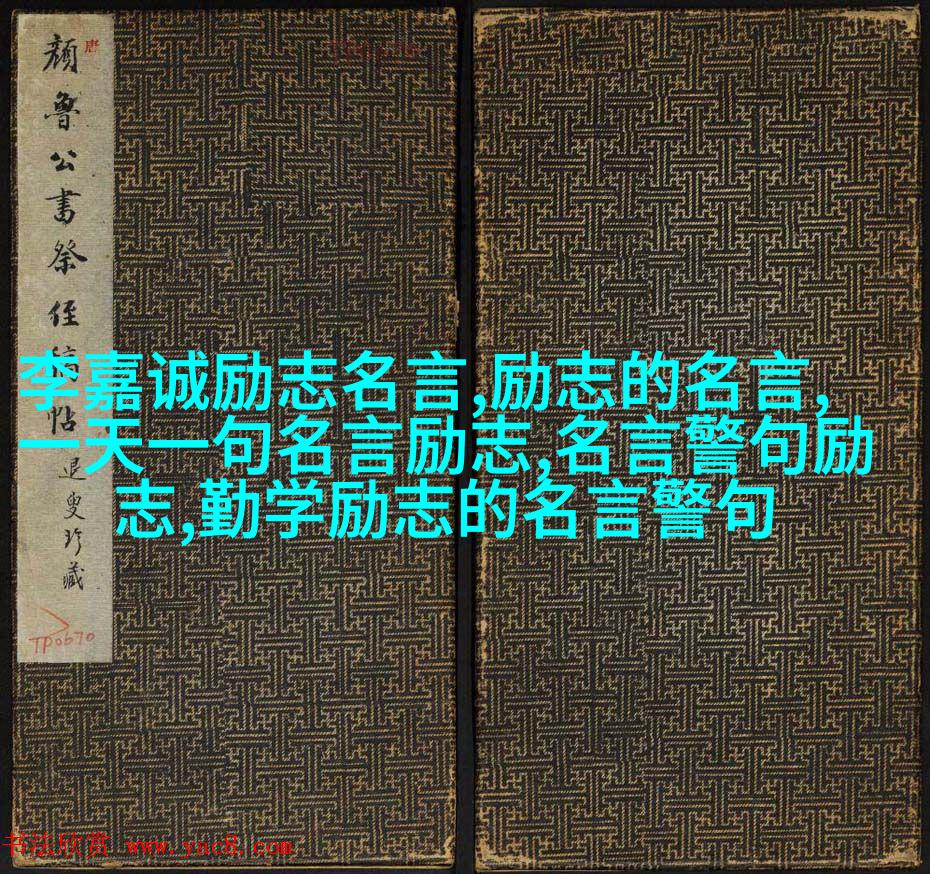 唐
颜鲁公书祭侄
帖
退叟珍藏
TP0670
李嘉诚励志名言,励志的名言,
一天一句名言励志,名言警句励
志,勤学励志的名言警句
书法欣赏 www.yac8.com